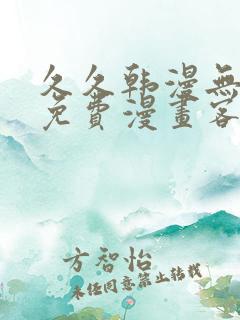 久久韩漫無
免費漫畫客
方智怡
未经同意禁止转载